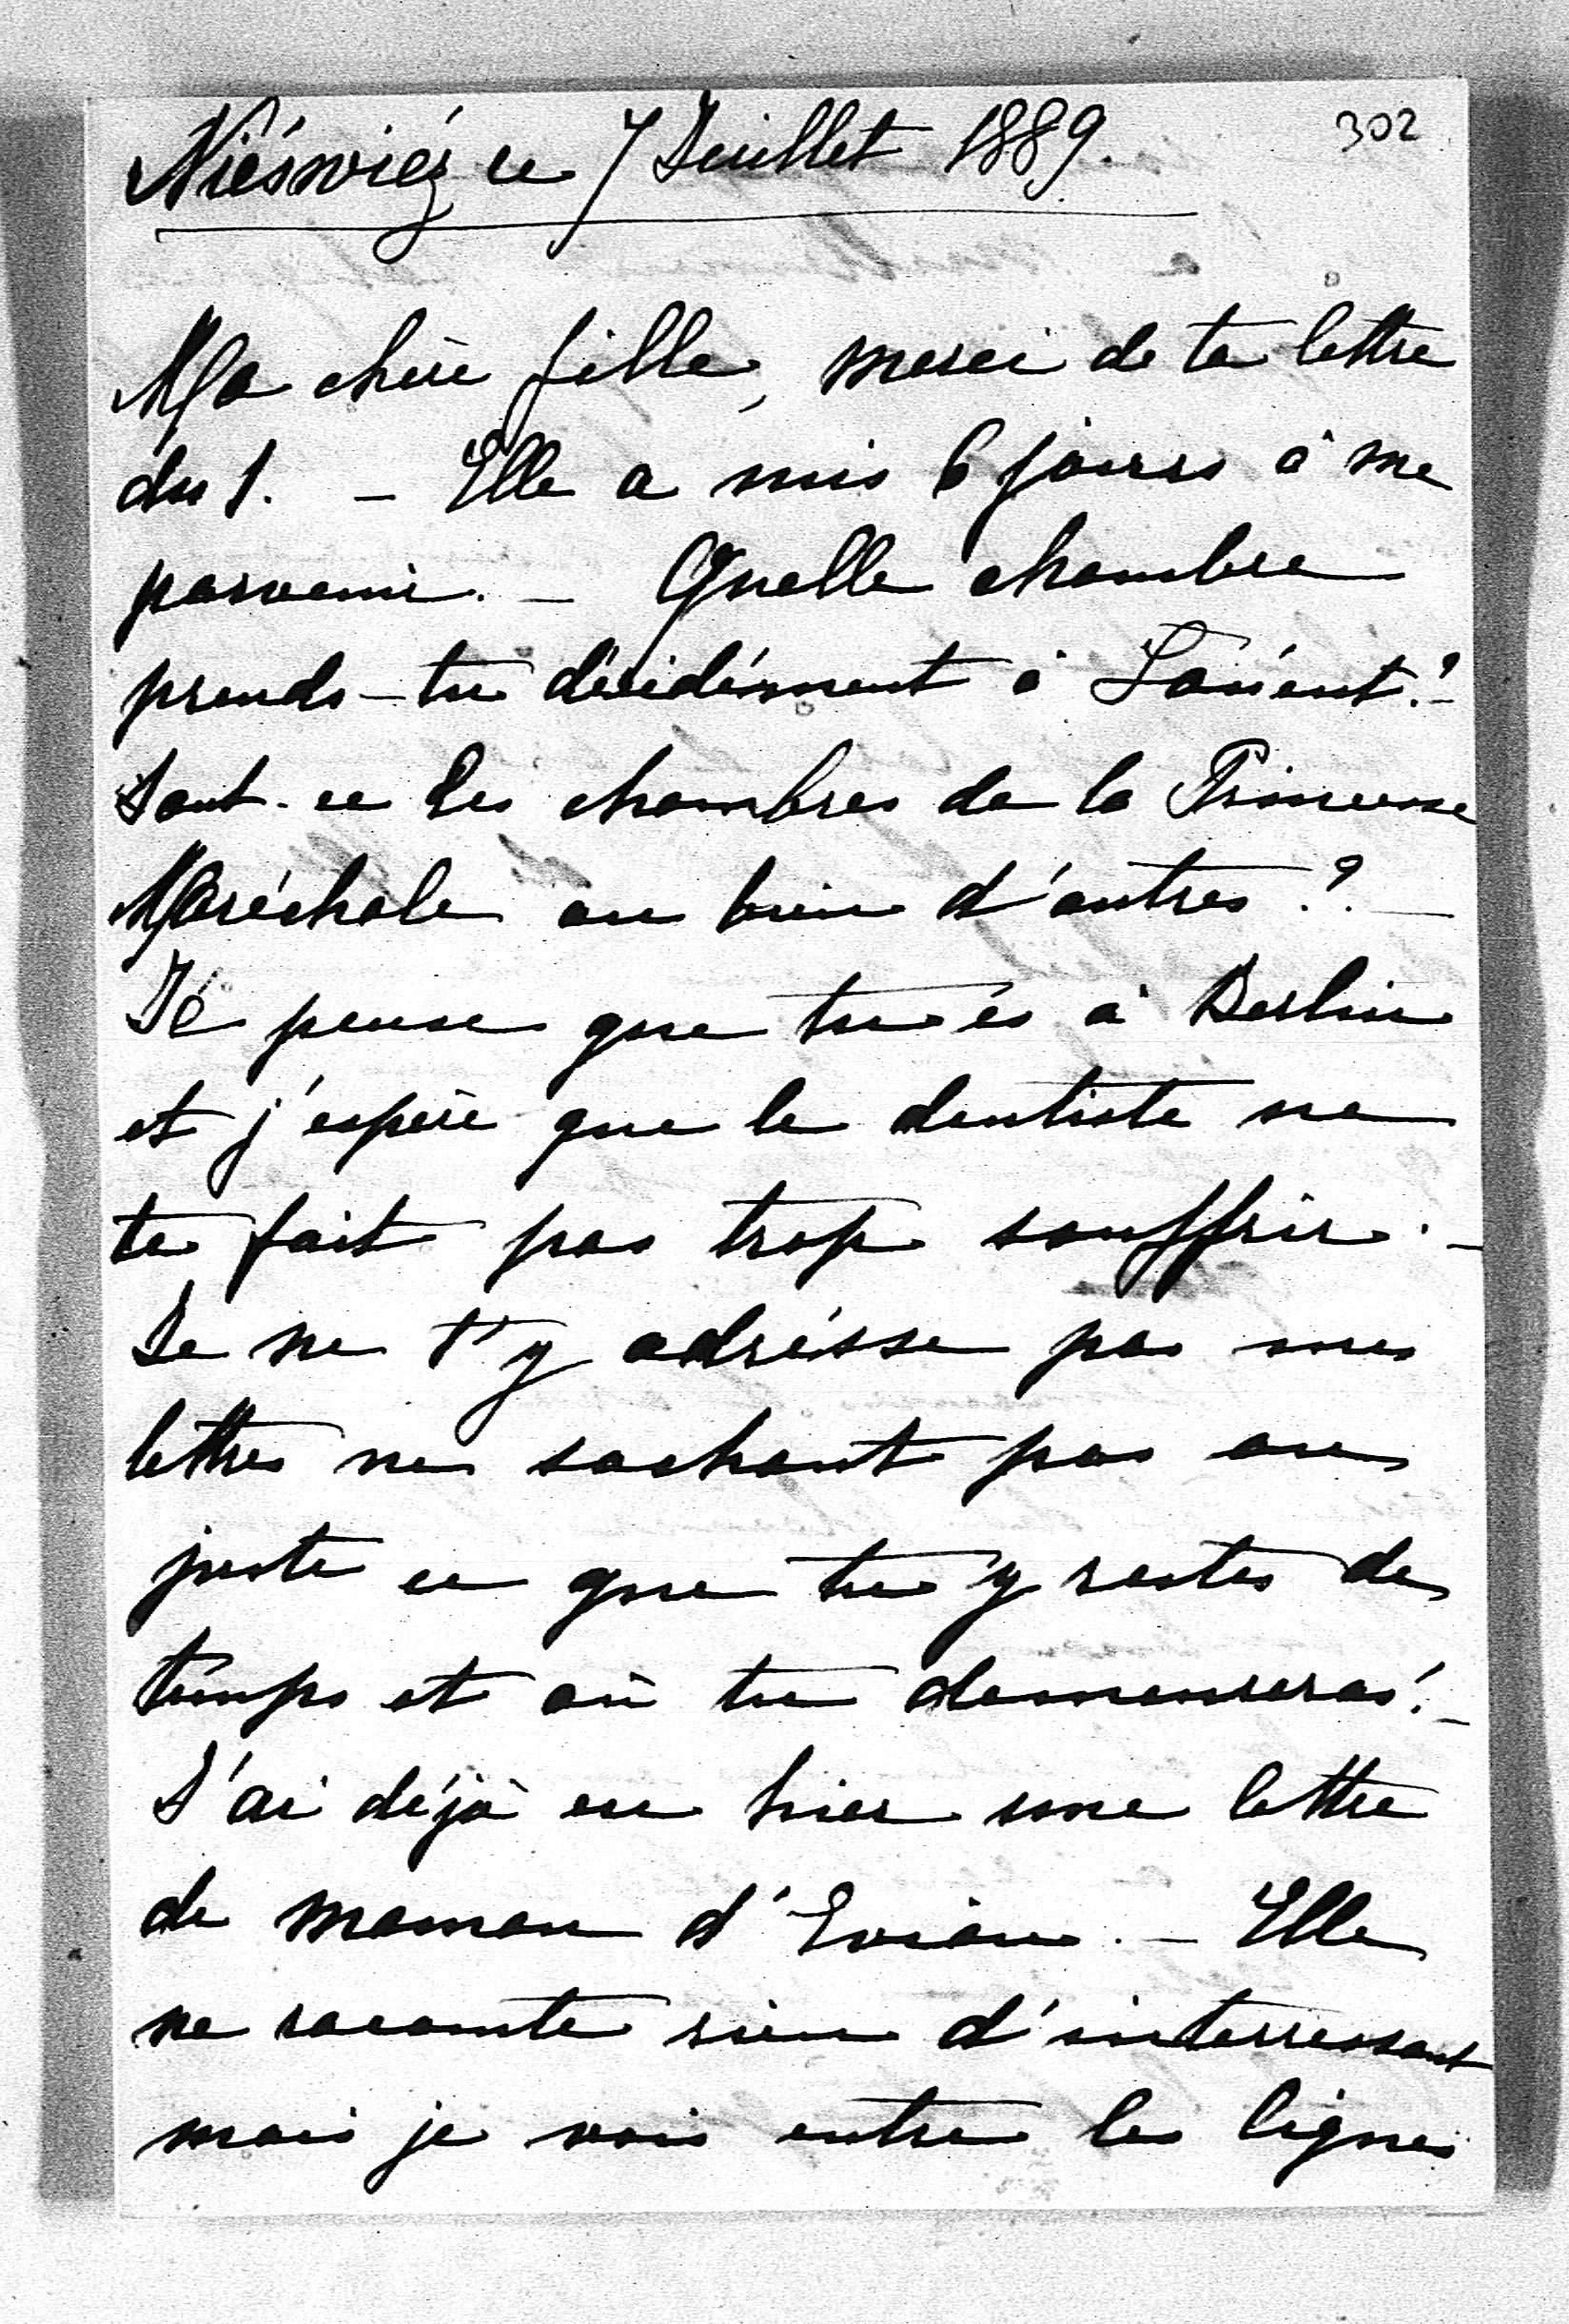 302
Niéświéź ce 7 Juillet 1889.
Ma chère fille, merci de ta lettre
du 1. – Elle a mis 6 jours à me
parvenir. – Quelle chambre
prends-tu décidément à Łańcut?–
Sont-ce les chambres de la Princesse
Maréchale ou bien d'autres?. –
Je pense que tu és à Berlin
et j'espère que le dentiste ne
te fait pas trop souffrir. –
Je ne t'y adrésse pas mes
lettres ne sachant pas au
juste ce que tu y restes de
temps et où tu demeureras!–
J'ai déjà eu hier une lettre
de maman d'Evian. – Elle
ne raconte rien d'interressant
mais je vois entre les lignes